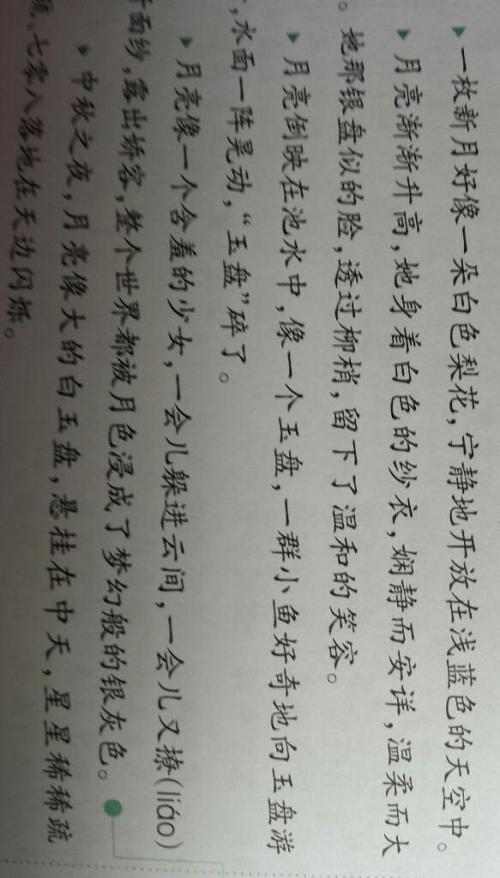 一枚新月好像一朵白色梨花，宁静地开放在浅蓝色的天空中。
月亮渐渐升高，她身着白色的纱衣，娴静而安详，温柔而大
。她那银盘似的脸，透过柳梢，留下了温和的笑容。
月亮倒映在池水中，像一个玉盘，一群小鱼好奇地向玉盘游
，水面一阵晃动，“玉盘”碎了。
月亮像一个含羞的少女，一会儿躲进云间，一会儿又撩(liáo)
面纱，露出娇容，整个世界都被月色浸成了梦幻般的银灰色。
中秋之夜，月亮像大的白玉盘，悬挂在中天，星星稀稀疏
、七零八落地在天边闪烁。